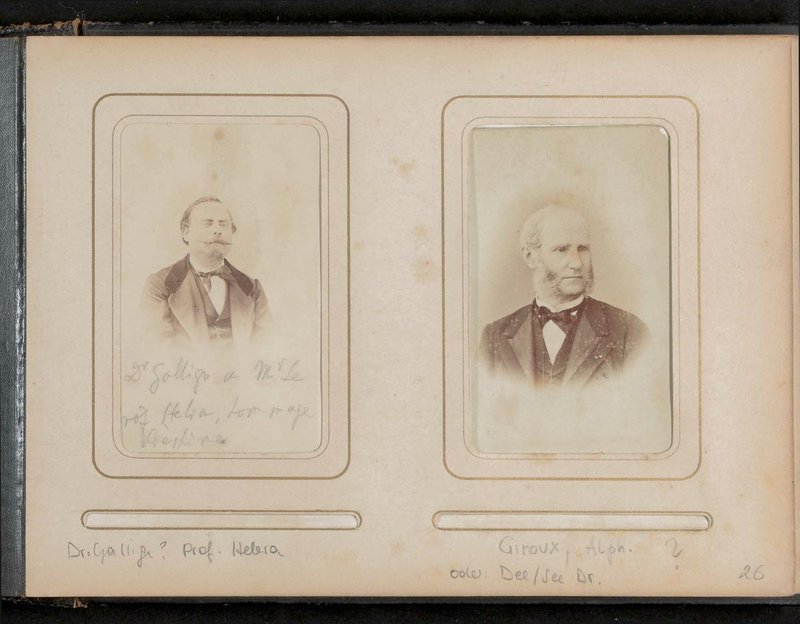 Dr Galligo a Mr Le
prof Hebra, hommage
Dr. Galligi? Prof. Hebra
Giroux, Alph. ?
oder: Dee/See Dr.
26